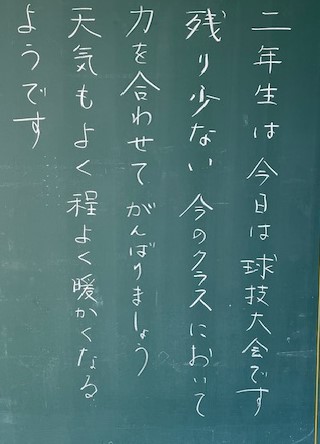 二年生は今日は球技大会です
残り少ない今のクラスにおいて
力を合わせてがんばりましょう
天気もよく程よく暖かくなる
ようです